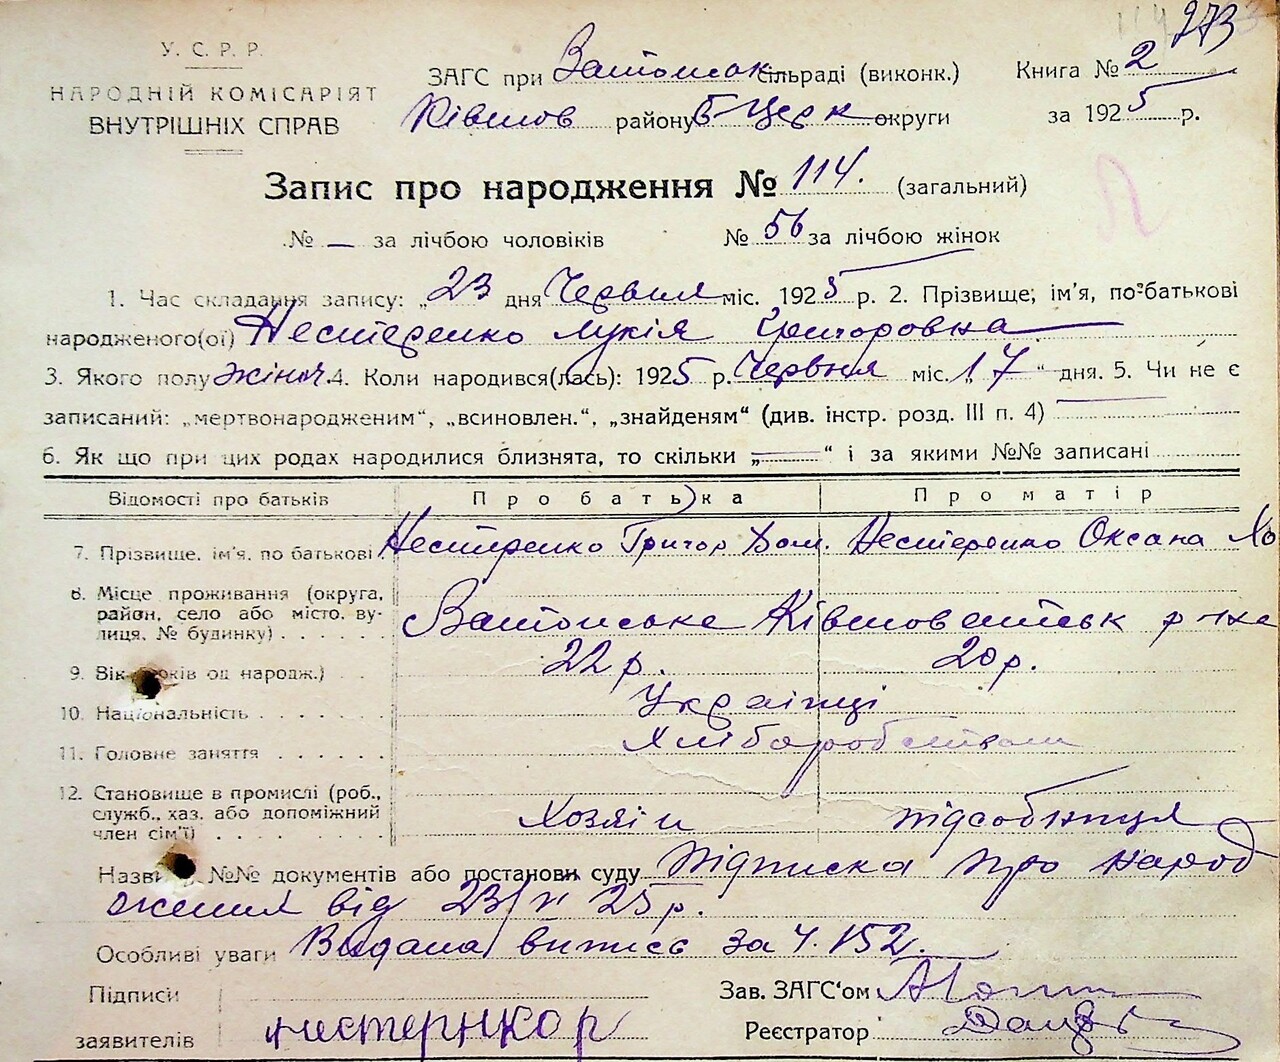 273
У. С. Р. Р.
НАРОДНІЙ КОМІСАРІЯТ
ВНУТРІШНІХ СПРАВ
ЗАГС при сільраді (виконк.)
Книга № 2
Ківшов району Б-Церк округи
за 1925 р.
Запис про народження № 114. (загальний)
№ — за лічбою чоловіків № 56 за лічбою жінок
1. Час складання запису: „23 дня Червня міс. 1925 р. 2. Прізвище, ім'я, по-батькові
народженого(ої) Нестеренко Лукія Григоровна
3. Якого полу жіноч. 4. Коли народився(лась): 1925 р. Червня міс. „17“ дня. 5. Чи не є
записаний: „мертвонародженим“, „всиновлен.“, „знайденям“ (див. інстр. розд. III п. 4)
6. Як що при цих родах народилися близнята, то скільки „—“ і за якими №№ записані
Відомості про батьків Про батька Про матір
7. Прізвище, ім'я, по батькові Нестеренко Григор Нестеренко Оксана
8. Місце проживання (округа,
район, село або місто, ву-
лиця, № будинку)
9. Вік років од народж.) 22 р. 20 р.
10. Національність Українці
11. Головне заняття Хліборобством
12. Становище в промислі (роб.,
служб., хаз. або допоміжний
член сім'ї) Хозяін підсобниця
№№ документів або постанови суду Підписка про народ
ження від 23/VI 25 р.
Особливі уваги Видана витись за Ч. 152.
Підписи
Зав. ЗАГС'ом
заявителів нестернко р
Реєстратор